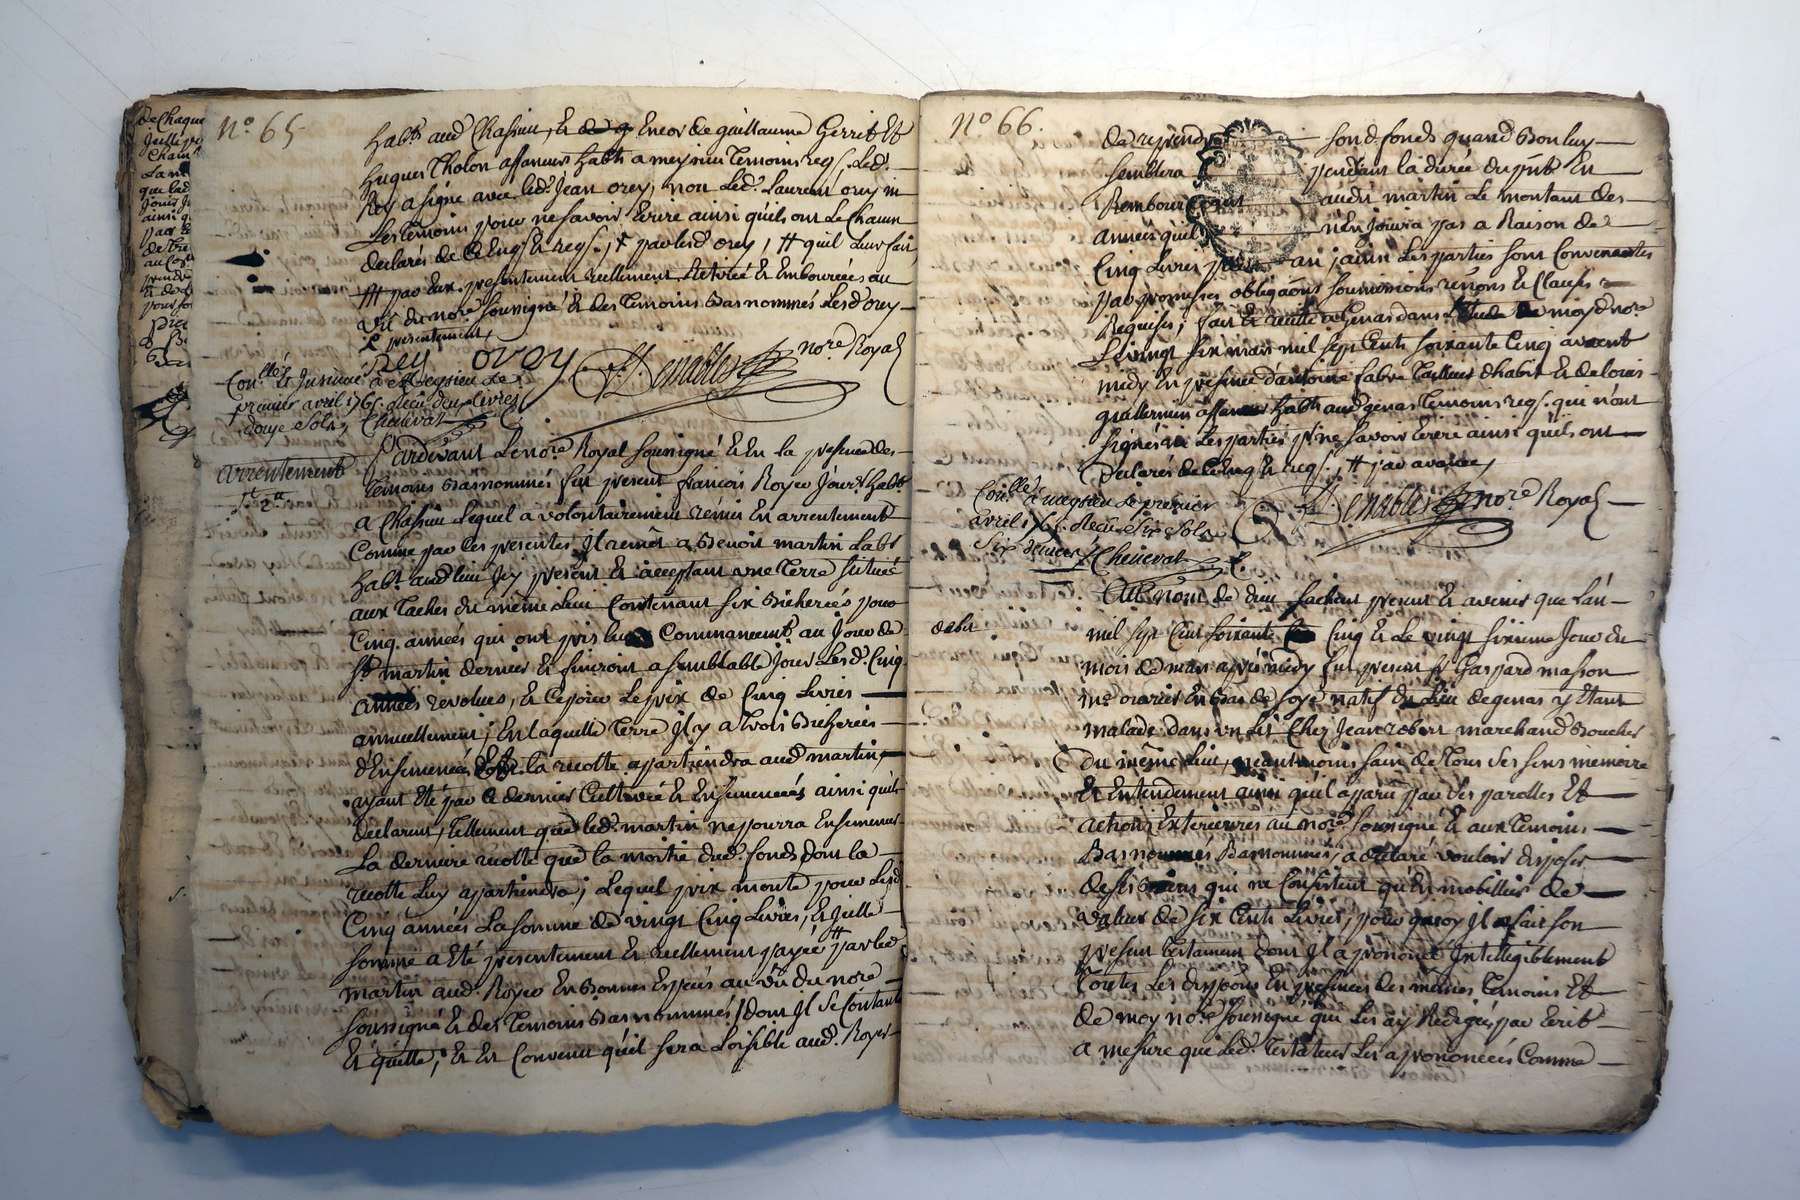 de Chaque
N.º 65
habt. aud Chassieu, Et de Encor de guillaume Gerrit Et
hugues Tholon affaneurs habts a meysieu Temoins reqs., Led.
Roy a signé avec led. Jean orey, non Led. Laurent orey ni
Les Temoins pour ne savoir Ecrire ainsi quils ont Le Chacun
declarés de Ce Enqs Et reqs., par lesd orey, # quil Leur fait
# par Eux presentement reellement Retirée Et Emboursées au
vû du nore. soussigné Et des Temoins Bas nommés Lesd orey
presentement,
Rey orey Denables nore. Royal
Conllé. Et Insinué a Meysieu Le
premier avril 1765. Recu deux Livres
douze sols, Chenevat
arrentement
Pardevant Le nore. Royal soussigné Et En la presence des
Temoins Bas nommés fut present françois Royer Jour. habt.
a Chassieu Lequel a volontairement rémis En arrentement
Comme par Ces presentes Il remet a Benoit martin Labr
habt. aud lieu Icy present Et acceptant une Terre Située
aux Taches du même Lieu Contenant six Bicherées pour
Cinq années qui ont pris Commancemt. au Jour de
St. martin dernier Et finiront a semblable Jour Lesd. Cinq
années revolues, Et Ce pour Le prix de Cinq Livres
annuellement; En laquelle Terre Il y a trois Bicherées
d'Ensemencés la recolte appartiendra aud martin,
ayant Eté par Ce dernier Cultivée Et Ensemencées ainsi quils
declarent, Tellement que led. martin ne pourra Ensemencer
La derniere recolte que la moitié dud. fonds dont la
recolte Luy appartiendra; Lequel prix monte pour Lesd
Cinq années La somme de vingt Cinq Livres, Et
somme a Eté presentement Et reellement payée # par led
martin aud. Royer En Bonnes Espèces au vû du nore.
soussigné Et des Temoins Bas nommés, dont Il se Contante
Et quitte; Et Est Convenu quil sera Loisible aud. Royer
Nº 66.
de reprend sond. fonds quand Bon luy
semblera pendant la durée du pnt. En
Remboursant aud. martin Le montant des
années quil n'En Jouira pas a Raison de
Cinq Livres par an, ainsi Les parties sont Convenantes
par promesses obligaons soumissions renons Et Clauses
Requises; fait Et recitté a Genas dans de moyd nore
Le vingt six mars mil sept Cents soixante Cinq avant
midy En presence d'antoine fabre Tailleur d'habit Et de Louis
guillermin affaneur habts aud genas Temoins reqs. qui n'ont
signés ni Les parties pr ne savoir Ecrire ainsi quils ont
Declarés de Ce Enq Et reqs., # par avance,
Denables nore Royal
Conllé. a meysieu Le premier
avril 1765. Recu Six Sols
Six deniers, Chenevat
debit
Au nom de dieu, sachent present Et avenir que L'an
mil sept Cent soixante Cinq Et Le vingt sixieme Jour du
mois de mars après midy fut present sr. Gaspard masson
me. ouvrier En Bas de soye natif du Lieu de genas y Etant
malade dans un Lit Chez Jean robert marchand Boucher
du même Lieu, néantmoins sain de Tous ses sens memoire
Et Entendement ainsi quil a paru par ses parolles Et
actions Exterieures au nore. soussigné Et aux Temoins
Bas nommés Bas nommés, a declaré vouloir disposer
de ses Biens qui ne Consistent qu'En mobillier de
valeur de six Cents Livres, pour quoy Il a fait son
present Testament dont Il a prononcé Intelligiblement
Toutes Les dispons En presence des mêmes Temoins Et
de moy nore. soussigné qui Les ay Redigées par Ecrit
a mesure que Led. Testateur Les a prononcées Comme